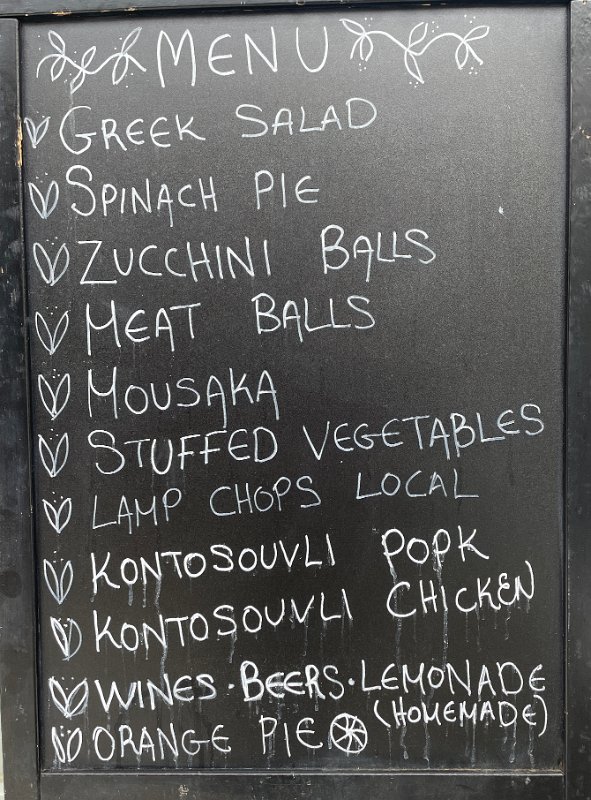 MENU
GREEK SALAD
SPINACH PIE
ZUCCHINI BALLS
MEAT BALLS
MOUSAKA
STUFFED VEGETABLES
LAMP CHOPS LOCAL
KONTOSOUVLI POPK
KONTOSOUVLI CHICKEN
WINES·BEERS·LEMONADE
(HOMEMADE)
ORANGE PIE